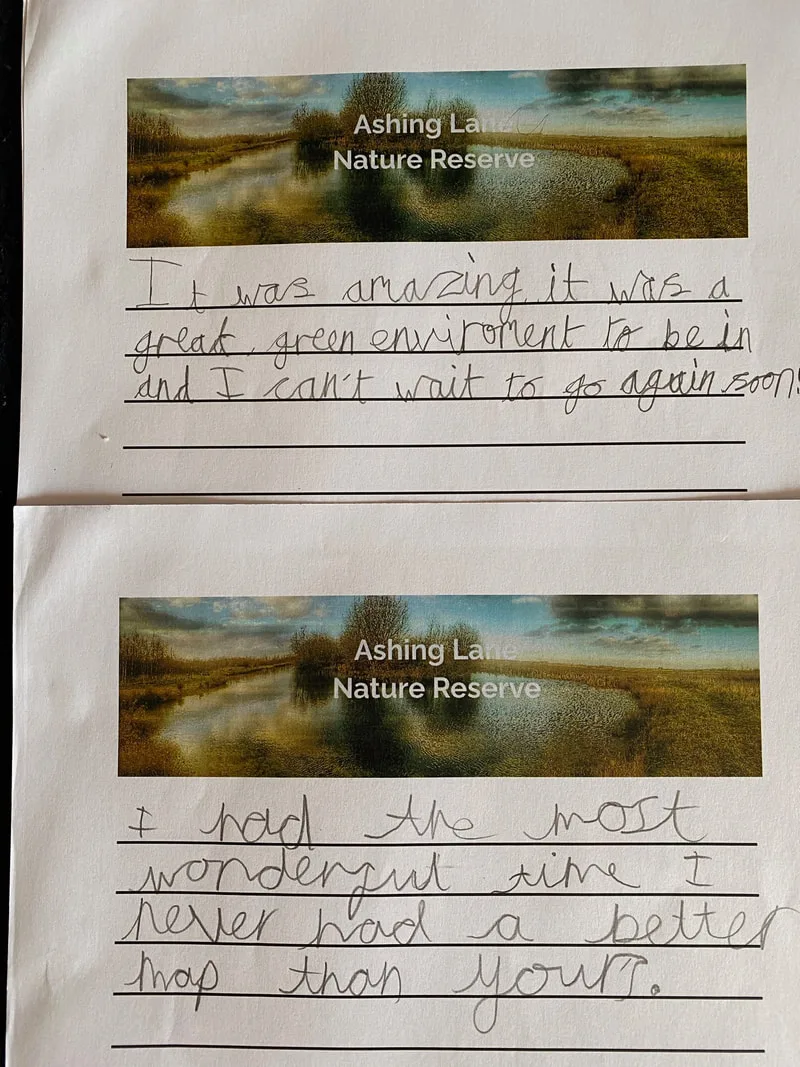 Ashing Lane
Nature Reserve
It was amazing it was a
great, green enviroment to be in
and I can't wait to go again soon!
Ashing Lane
Nature Reserve
I had the most
wonderful time I
never had a better
map than yours.